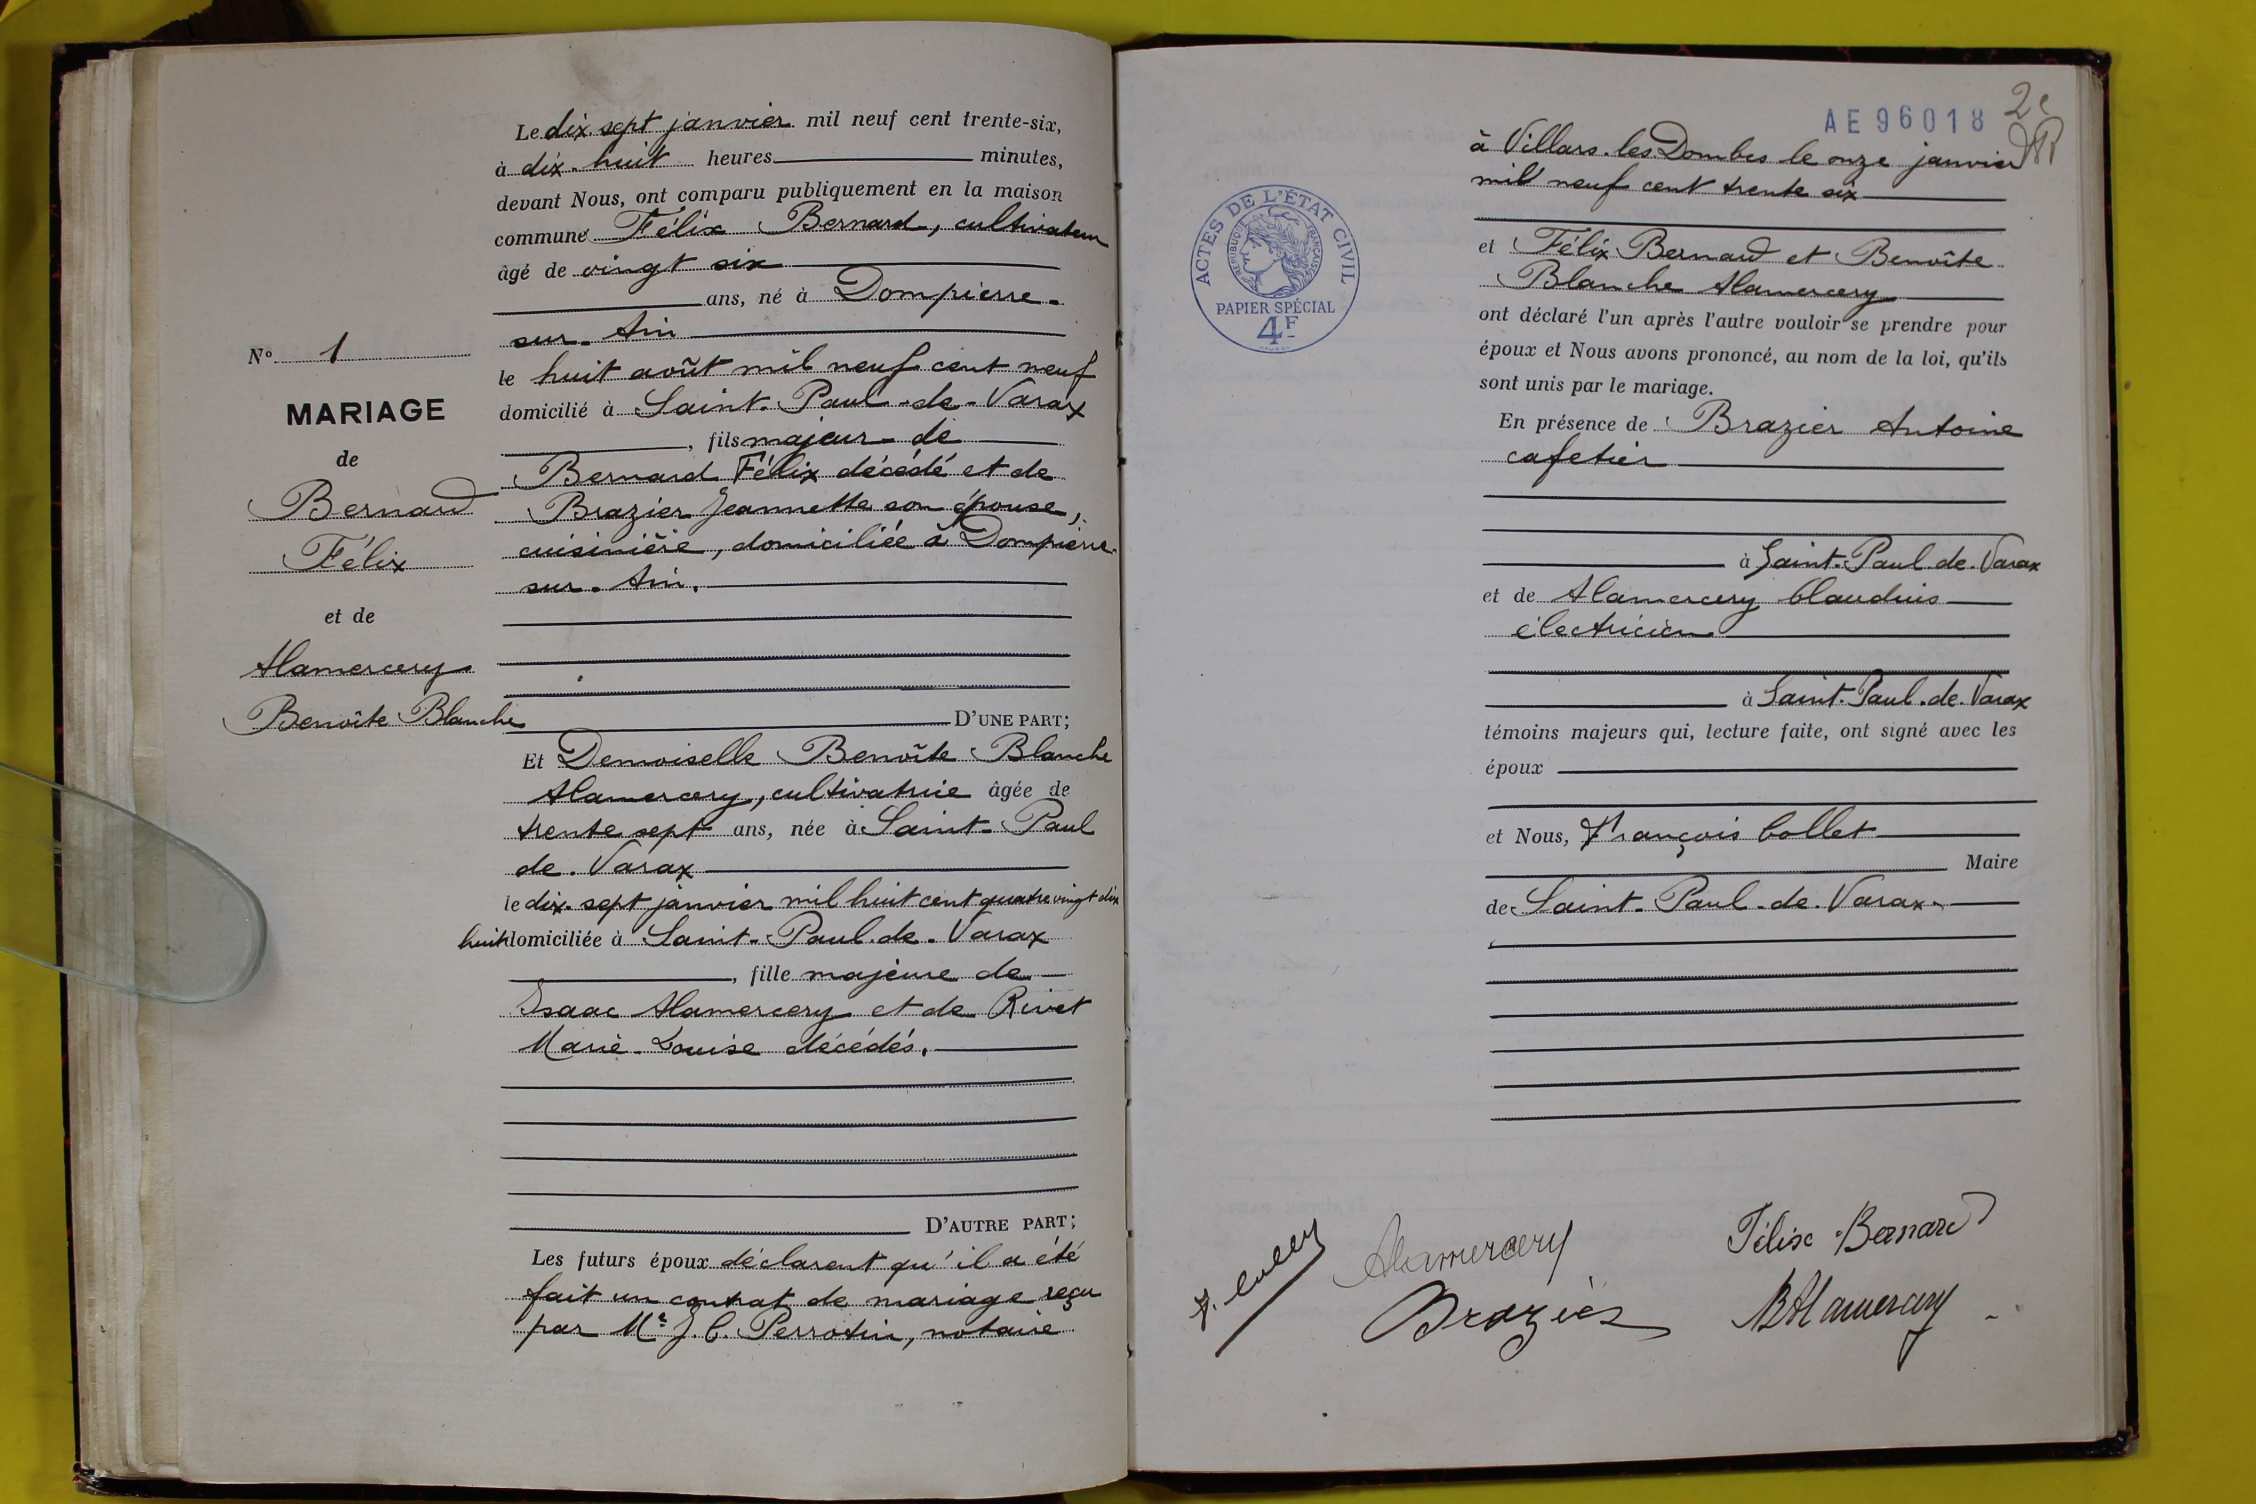 Le dix sept janvier mil neuf cent trente-six,
à dix-huit heures minutes,
devant Nous, ont comparu publiquement en la maison
commune Félix Bernard, cultivateur
âgé de vingt six
ans, né à Dompierre-
sur-Ain
le huit août mil neuf cent neuf
domicilié à Saint-Paul-de-Varax
, fils majeur de
Bernard Félix décédé et de
Brazier Jeannette son épouse,
cuisinière, domiciliée à Dompierre-
sur-Ain.
D'UNE PART;
Et Demoiselle Benoîte Blanche
Alamercery, cultivatrice âgée de
trente sept ans, née à Saint-Paul
de-Varax
le dix-sept janvier mil huit cent quatre vingt dix
huit domiciliée à Saint-Paul-de-Varax
, fille majeure de
Isaac Alamercery et de Rivet
Marie-Louise décédés.
D'AUTRE PART;
Les futurs époux déclarent qu'il a été
fait un contrat de mariage reçu
par Me J. C. Perrotin, notaire
N° 1
MARIAGE
de
Bernard
Félix
et de
Alamercery
Benoîte Blanche
AE 96018
2e
à Villars-les-Dombes le onze janvier
mil neuf cent trente six
et Félix Bernard et Benoîte
Blanche Alamercery
ont déclaré l'un après l'autre vouloir se prendre pour
époux et Nous avons prononcé, au nom de la loi, qu'ils
sont unis par le mariage.
En présence de Brazier Antoine
cafetier
à Saint-Paul-de-Varax
et de Alamercery Claudius
électricien
à Saint-Paul-de-Varax
témoins majeurs qui, lecture faite, ont signé avec les
époux
et Nous, François Collet
Maire
de Saint-Paul-de-Varax
ACTES DE L'ÉTAT CIVIL
RÉPUBLIQUE FRANÇAISE
PAPIER SPÉCIAL
4F
F. Collet
Alamercery
Félix Bernard
Brazier
B Alamercery